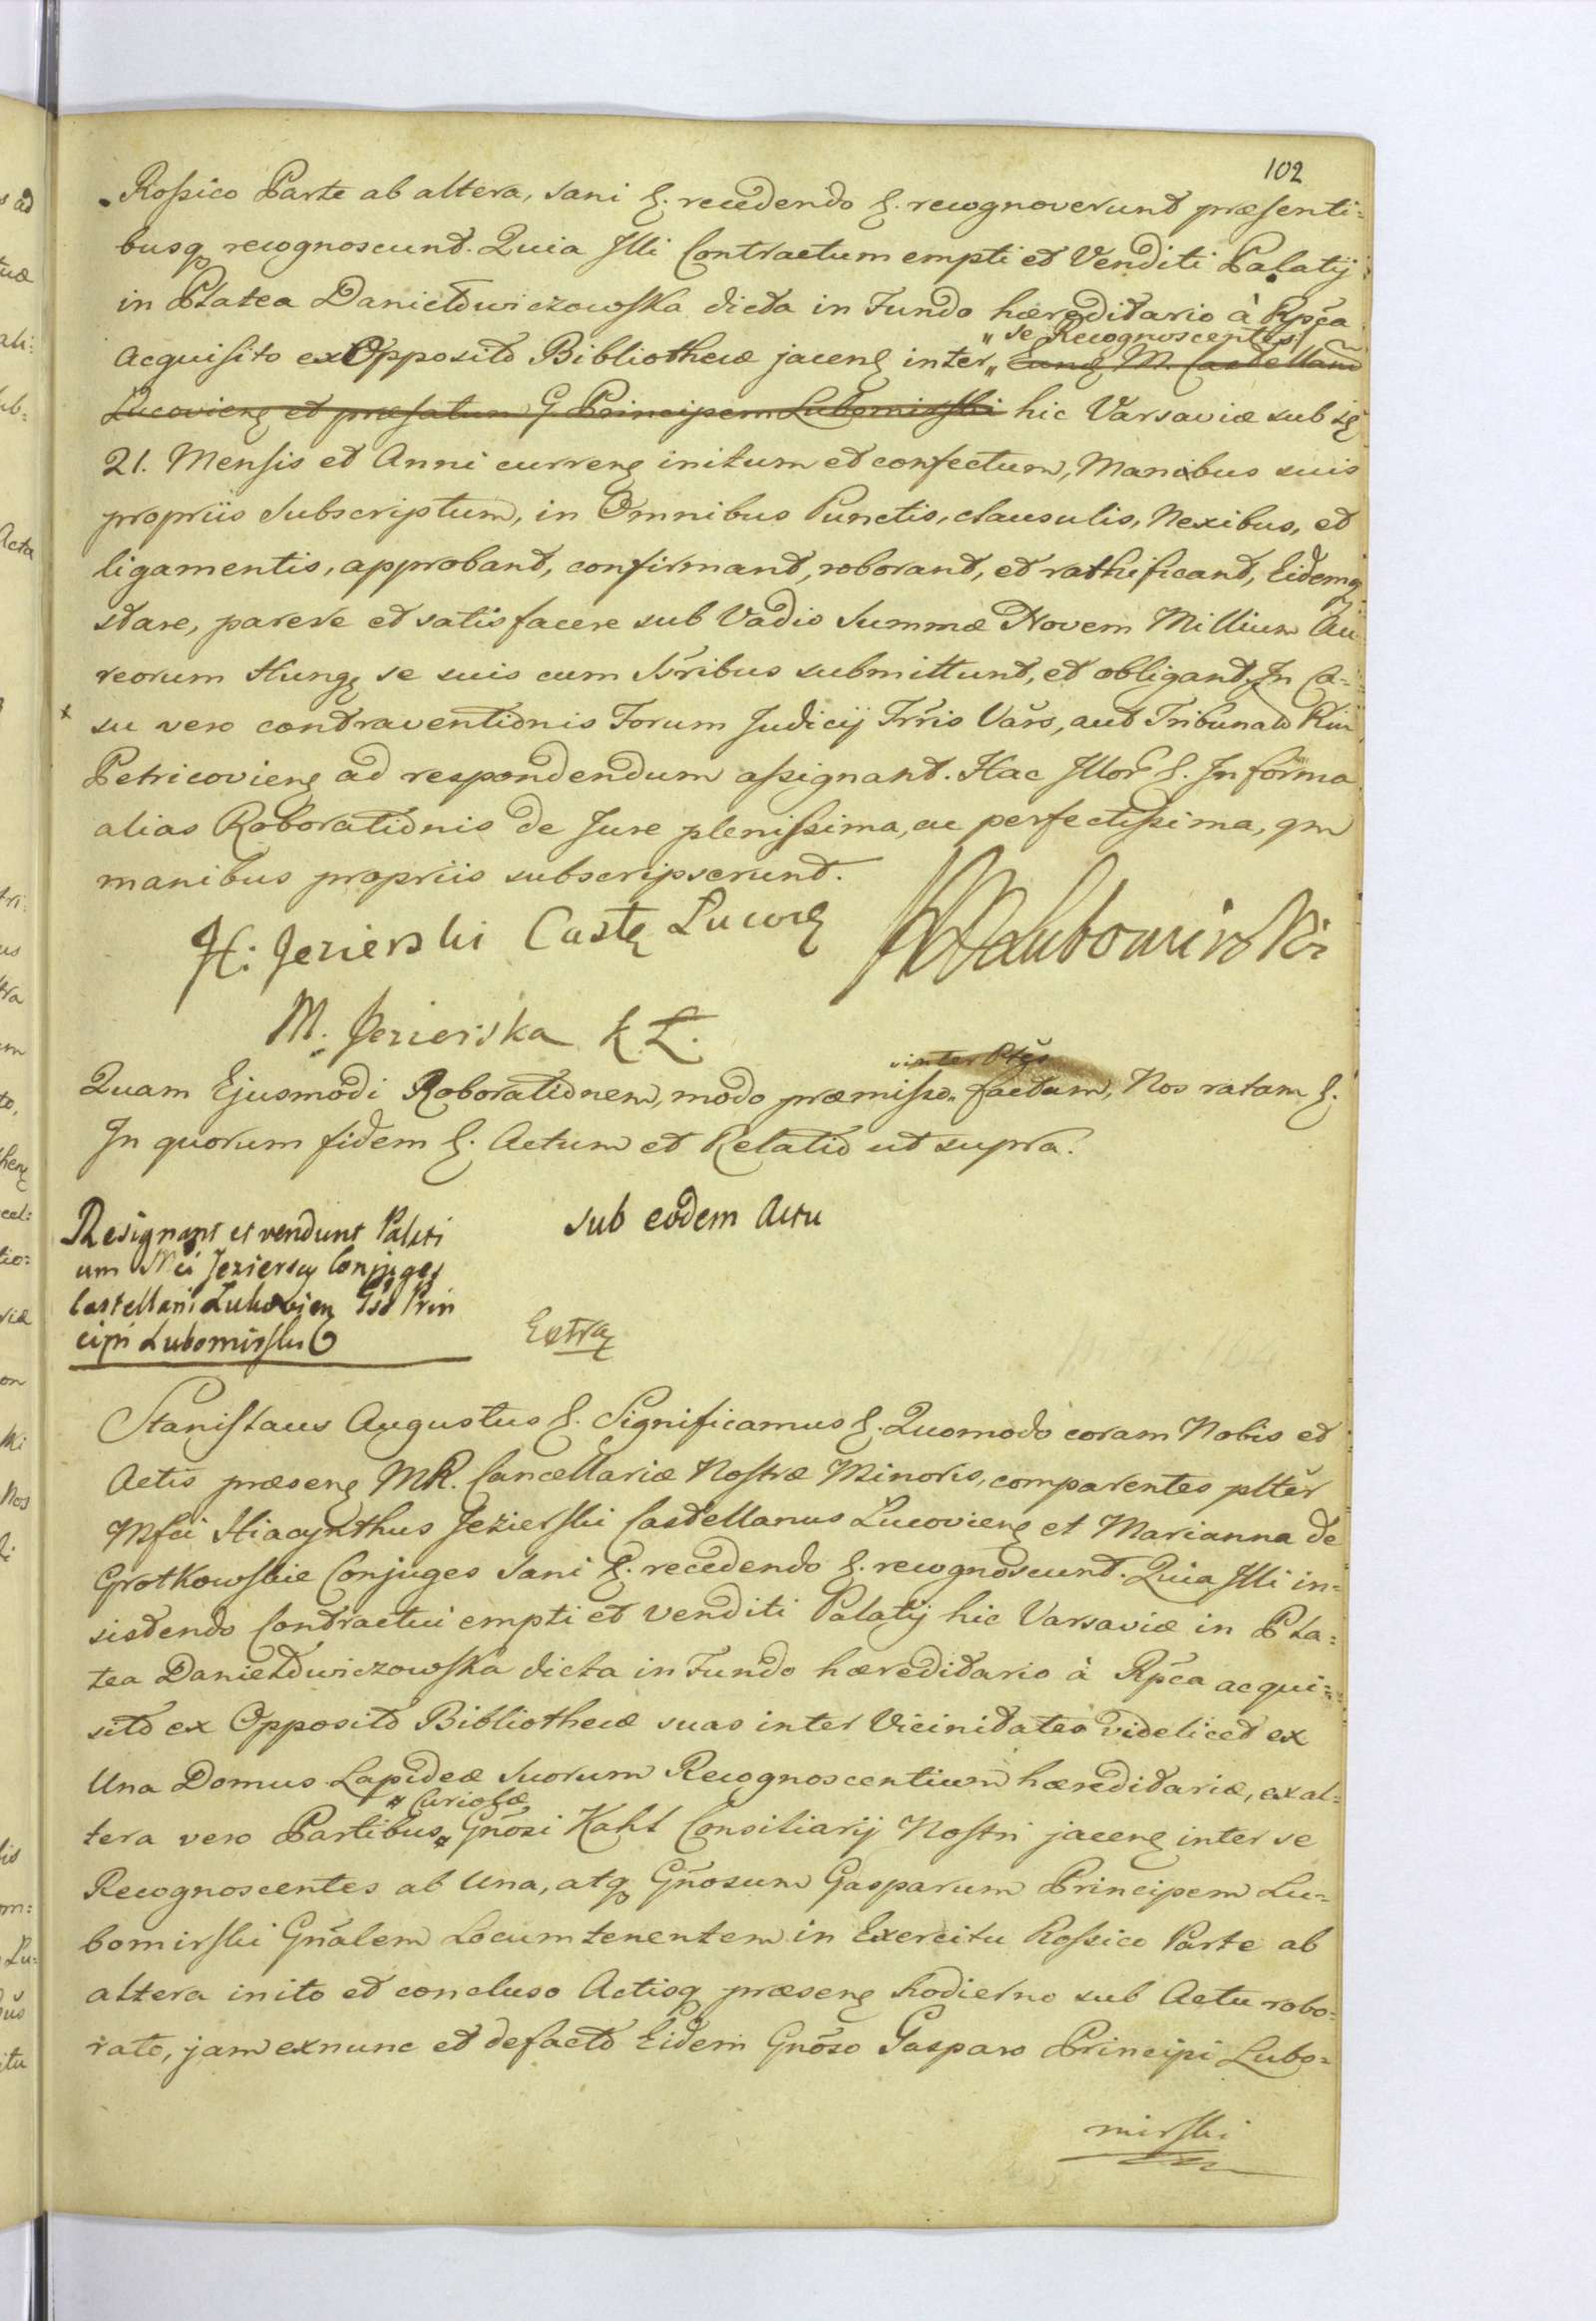 102
Rossico Parte ab altera, sani &. recedendo &. recognoverunt præsenti=
busq recognoscunt. Quia Illi Contractum empti et Venditi Palatij
in Platea Daniełłwiczowska dicta in Fundo hæreditario à Rpca
" se Recognoscentes
Acquisito ex Opposito Bibliothecæ jacen inter " Eund M. Castellanu
Lucovien et præfatum G Principem Lubomirski hic Varsaviæ sub
21. Mensis et Anni curren initum et confectum, Manibus suis
propriis Subscriptum, in Omnibus Punctis, clausulis, Nexibus, et
ligamentis, approbant, confirmant, roborant, et rathificant, Eidemq
stare, parere et satisfacere sub Vadio Summæ Novem Millium Au
reorum Hung se suis cum Srribus submittunt, et obligant, In Ca=
x su vero contraventionis Forum Judicij Trris Vars, aut Tribunalo
Petricovien ad respondendum assignant. Hac Illor &. In forma
alias Roborationis de Jure plenissima, ac perfectissima, qm
manibus propriis subscripserunt.
H: Jezierski Caste Lucov
Lubomirski
M. Jezierska K Ł.
inter Ptes
Quam Ejusmodi Roborationem, modo præmisso " factam, Nos ratam &.
In quorum fidem &. Actum et Relatio ut supra.
Resignant et vendunt Palati
um Mci Jezierscy Conjuges
Castellani Lukovien Gso Prin
cipi Lubomirski
Sub eodem Actu
Extra
Stanislaus Augustus &. Significamus &. Quomodo coram Nobis et
Actis præsen MR. Cancellariæ Nostræ Minoris, comparentes pltěr
Mfci Hiacynthus Jezierski Castellanus Lucovien et Marianna de
Grotkowskie Conjuges Sani &. recedendo &. recognoscunt. Quia Illi in=
sistendo Contractui empti et venditi Palatij hic Varsaviæ in Pla=
tea Daniełłwiczowska dicta in Fundo hæreditario à Rpca acqui=
sito ex Opposito Bibliothecæ suas inter Vicinitates videlicet ex
Una Domus Lapideæ Suorum Recognoscentium hæreditariæ, ex al=
" Curiosæ
tera vero Partibus " Gnosi Kaht Consiliarij Nostri jacen inter se
Recognoscentes ab Una, atq Gnosum Gasparum Principem Lu=
bomirski Gnalem Locumtenentem in Exercitu Rossico Parte ab
altera inito et concluso Actisq præsen hodierno sub Actu robo=
rato, jam exnunc et defacto Eidem Gnoso Gasparo Principi Lubo=
mirski